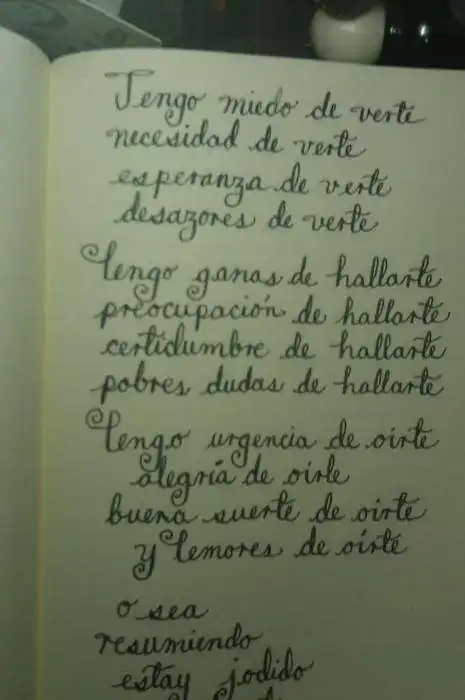 Tengo miedo de verte
necesidad de verte
esperanza de verte
desazores de verte
tengo ganas de hallarte
preocupación de hallarte
certidumbre de hallarte
pobres dudas de hallarte
tengo urgencia de oirte
alegría de oirle
buena suerte de oirte
y temores de oírte
o sea
resumiendo
estay jodido